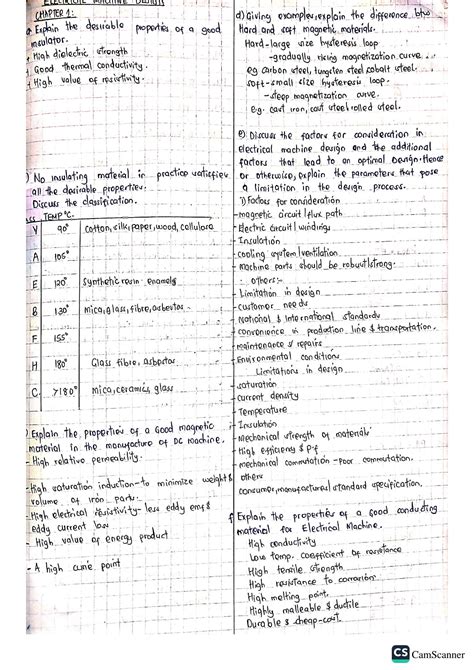 ELECTRICAL MACHINE DESIGN
CHAPTER 1:
a Explain the desirable properties of a good
insulator.
- High dielectric strength
- Good thermal conductivity.
- High value of resistivity.
) No insulating material in practice satisfies
all the desirable properties.
Discuss the classification.
TEMP °C.
Y 90° Cotton, silk, paper, wood, cellulose
A 105°
E 120° Synthetic resin enamels
B 130° mica, glass, fibre, asbestos
F 155°
H 180° Glass fibre, asbestos
C >180° mica, ceramics, glass
) Explain the properties of a Good magnetic
material in the manufacture of DC machine.
- High relative permeability.
- High saturation induction - to minimize weight &
volume of iron parts.
- High electrical resistivity - less eddy emfs
eddy current loss
- High value of energy product
- A high curie point
d) Giving examples, explain the difference btw
Hard and soft magnetic materials.
Hard - large size hysteresis loop
- gradually rising magnetization curve.
eg carbon steel, tungsten steel cobalt steel.
soft - small size hysteresis loop.
- steep magnetization curve.
e.g. cast iron, cast steel rolled steel.
e) Discuss the factors for consideration in
electrical machine design and the additional
factors that lead to an optimal design. Hence
or otherwise, explain the parameters that pose
a limitation in the design process.
i) Factors for consideration
- magnetic circuit / flux path
- Electric circuit / windings
- Insulation
- cooling system / ventilation
- machine parts should be robust / strong.
: others:-
- Limitation in design
- customer needs
- National & International standards
- convenience in production line & transportation.
- maintenance & repairs
- Environmental conditions
Limitations in design
- saturation
- current density
- Temperature
- Insulation
- Mechanical strength of materials
- High efficiency & P.f
- mechanical commutation - Poor commutation.
- others
consumer, manufacturers / standard specification.
f Explain the properties of a good conducting
material for Electrical Machine.
High conductivity
Low temp. coefficient of resistance
High tensile strength
High resistance to corrosion
High melting point.
Highly malleable & ductile
Durable & cheap - cost.
CS CamScanner